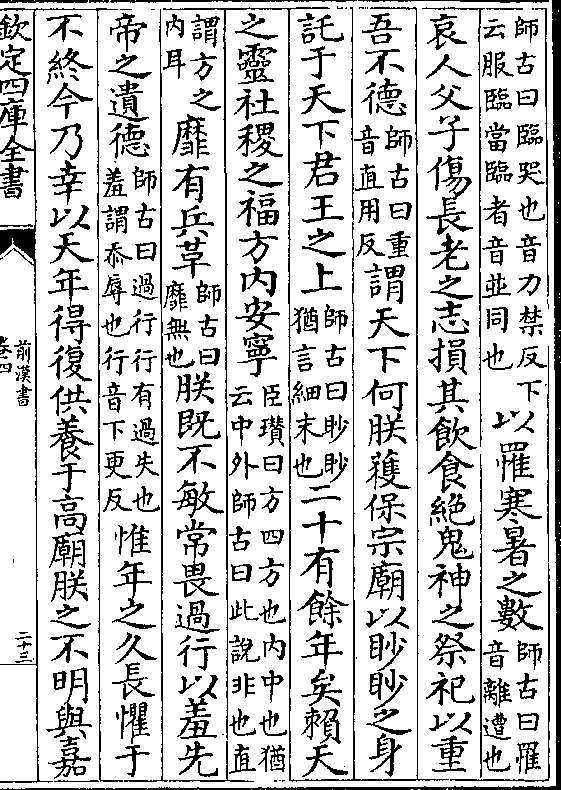 師古曰臨哭也音力禁反下云服臨當臨者音並同也以罹寒暑之數師古曰罹音離遭也
哀人父子傷長老之志損其飲食絕鬼神之祭祀以重
吾不德師古曰重音直用反謂天下何朕獲保宗廟以眇眇之身
託于天下君王之上師古曰眇眇猶言細末也二十有餘年矣賴天
之靈社稷之福方内安寧臣瓚曰方四方也内中也猶云中外師古曰此説非也直
謂方之内耳靡有兵革師古曰靡無也朕既不敏常畏過行以羞先
帝之遺德師古曰過行行有過失也羞謂忝辱也行音下更反惟年之久長懼于
不終今乃幸以天年得復供養于高廟朕之不明與嘉
欽定四庫全書
前漢書
卷四
二十三